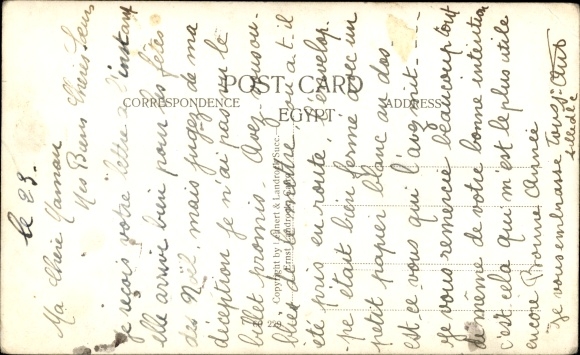 POST CARD
CORRESPONDENCE
ADDRESS
EGYPT
Copyright by Lehnert & Landrock Succ.
Ernst Landrock
le 23.
Ma Chère Maman
Mes Biens Chers
Je reçois votre lettre a l'instant
elle arrive bien pour les fêtes
des Noël, mais jugez de ma
déception je n'ai pas vu le
billet promis. Avez-vous ou-
blier de le mettre, ou a t-il
été pris en route, l'envelop-
pe était bien fermé avec un
petit papier blanc au dos
est ce vous qui l'avez mit---
Je vous remercie beaucoup tout
de même de votre bonne intention
c'est cela qui m'est le plus utile
encore Bonne Année
Je vous embrasse Tous